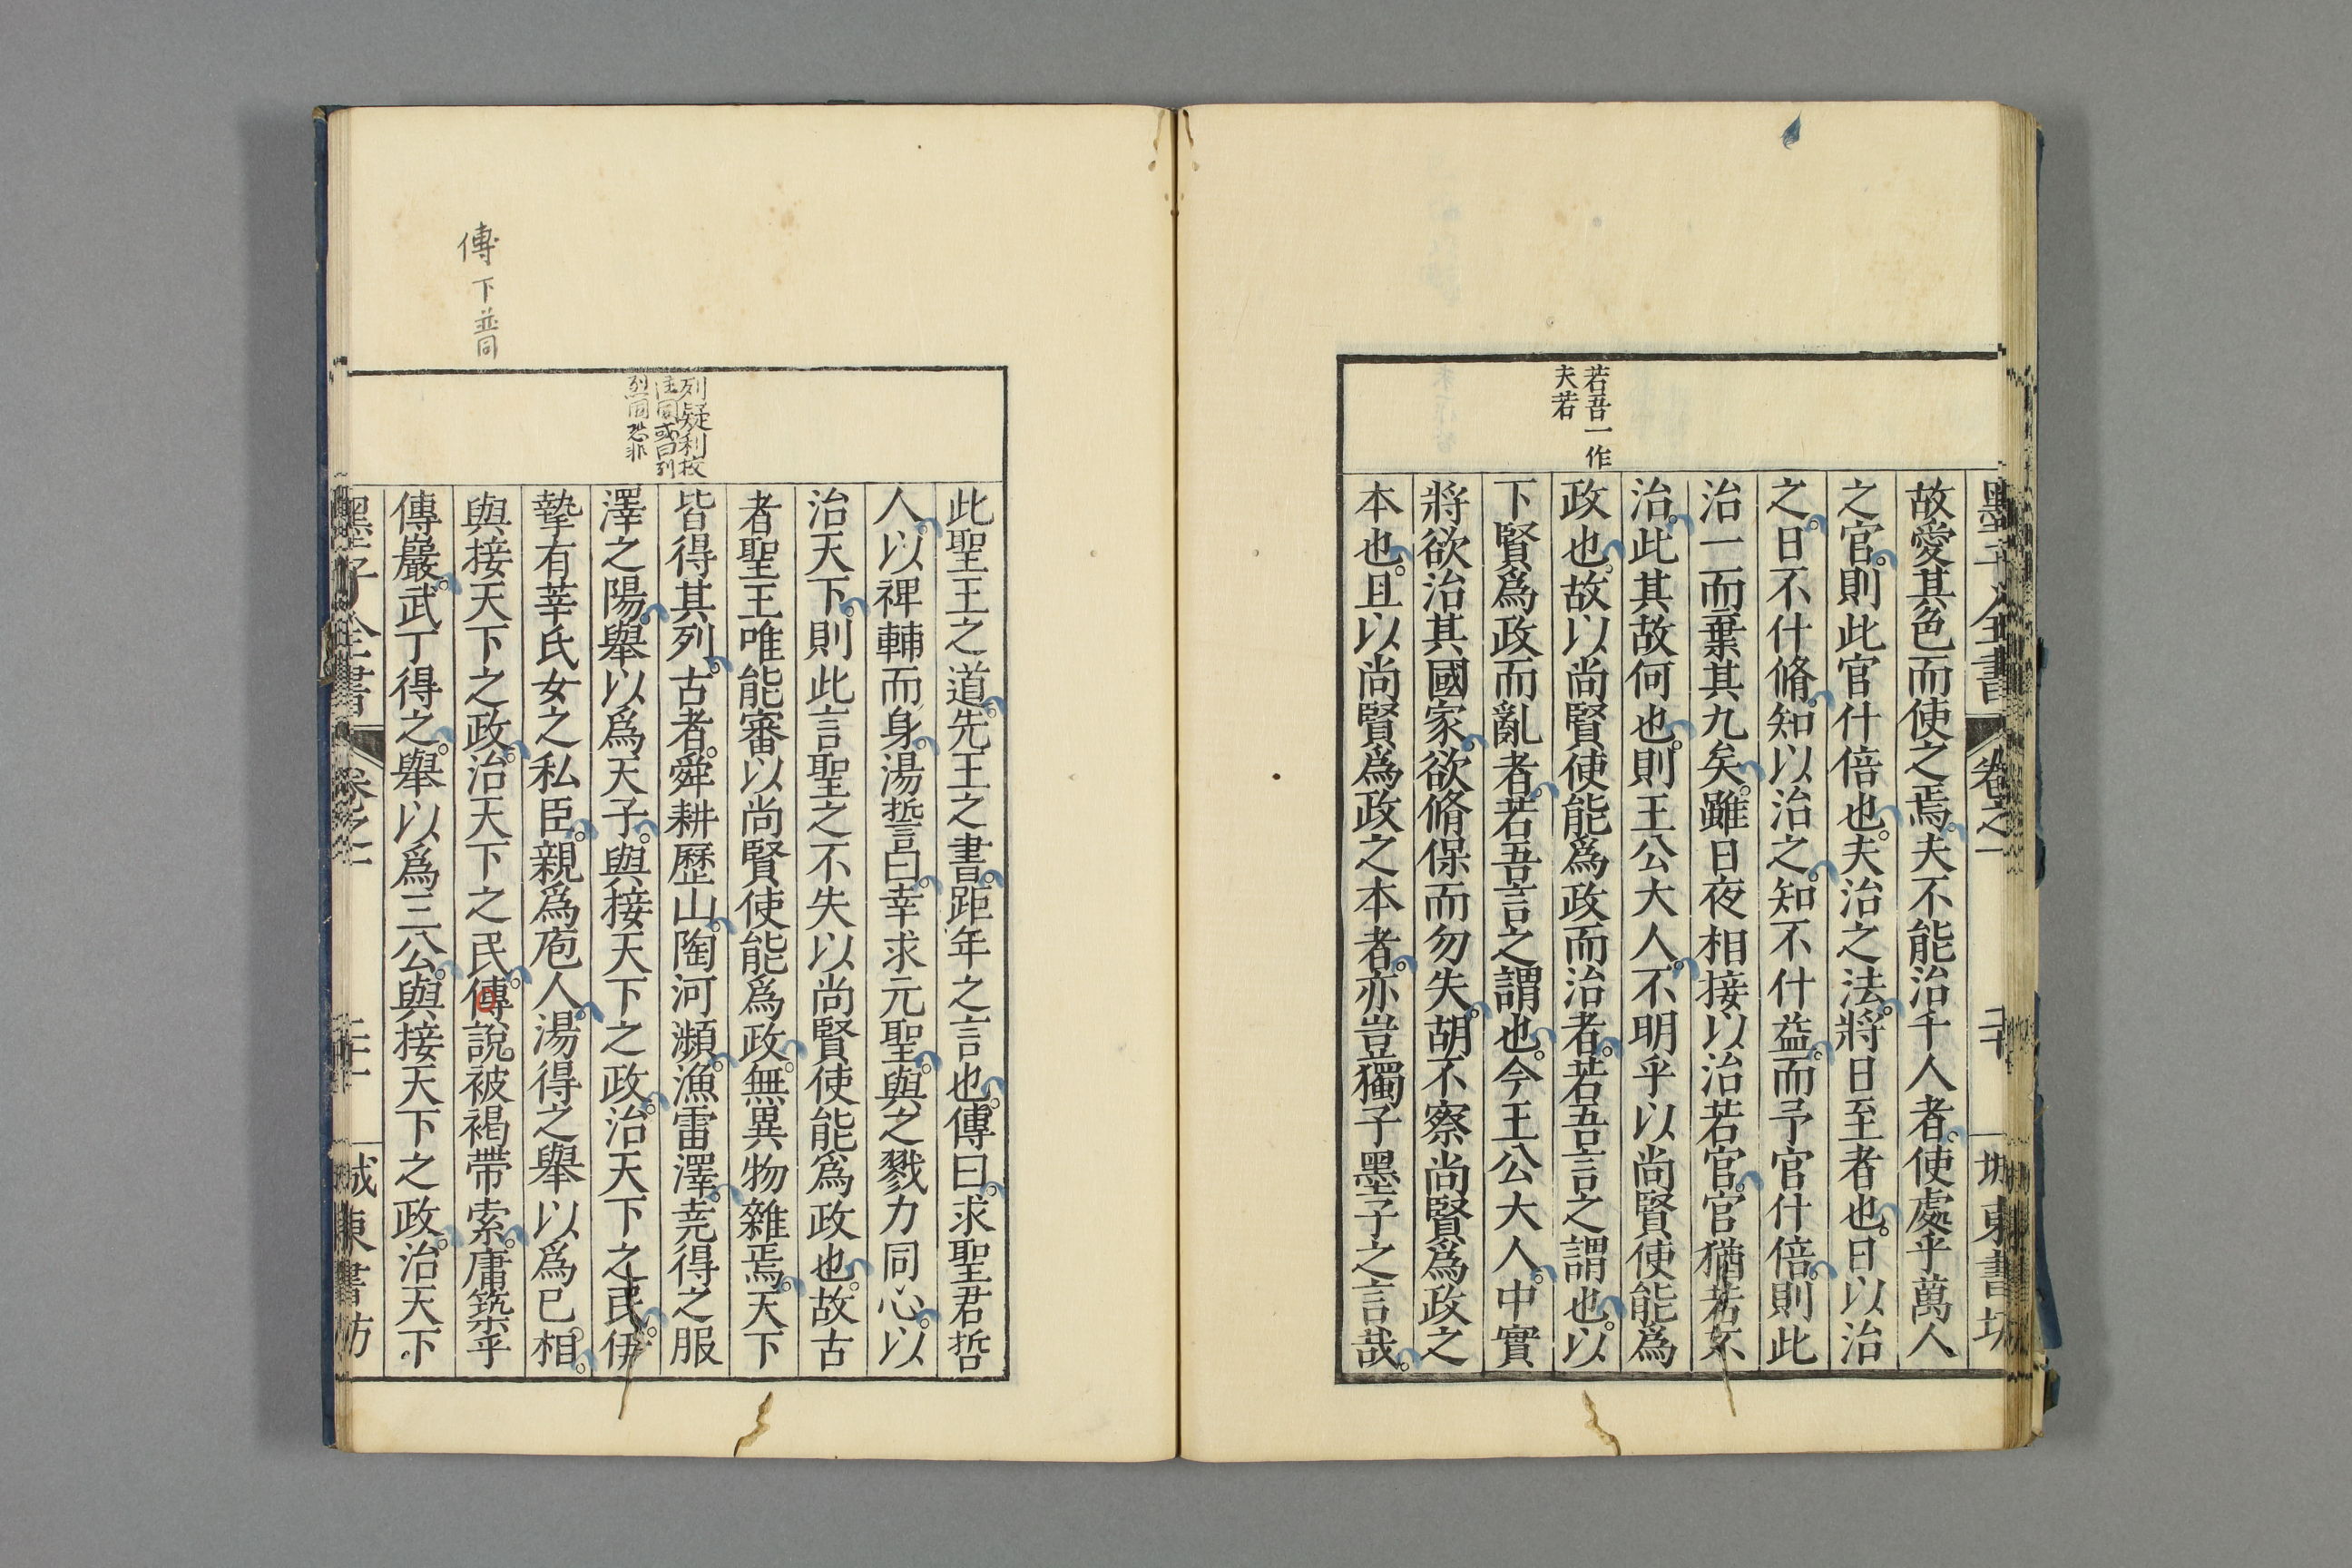 墨子全書 卷之一 二十 城東書坊
故愛其色而使之焉。夫不能治千人者。使處乎萬人
之官。則此官什倍也。夫治之法。將日至者也。日以治
之。日不什脩。知以治之。知不什益。而予官什倍。則此
治一而棄其九矣。雖日夜相接以治若官。官猶若
治。此其故何也。則王公大人。不明乎以尚賢使能爲
政也。故以尚賢使能爲政而治者。若吾言之謂也。以
下賢爲政而亂者。若吾言之謂也。今王公大人。中實
將欲治其國家。欲脩保而勿失。胡不察尚賢爲政之
本也。且以尚賢爲政之本者。亦豈獨子墨子之言哉。
若吾一作
夫若
此聖王之道。先王之書。距年之言也。傳曰。求聖君哲
人。以裨輔而身。湯誓曰。幸求元聖。與之戮力同心。以
治天下。則此言聖之不失以尚賢使能爲政也。故古
者聖王唯能審以尚賢使能爲政。無異物雜焉。天下
皆得其列。古者。舜耕歷山。陶河瀕。漁雷澤。堯得之服
澤之陽。舉以爲天子。與接天下之政。治天下之民。伊
摯有莘氏女之私臣。親爲庖人。湯得之舉以爲己相。
與接天下之政。治天下之民。傅說被褐帶索。庸築乎
傳巖。武丁得之。舉以爲三公。與接天下之政。治天下
墨子全書 卷之二 二十一 城東書坊
列疑利挍
注同或曰列
烈同恐非
傅
下並同